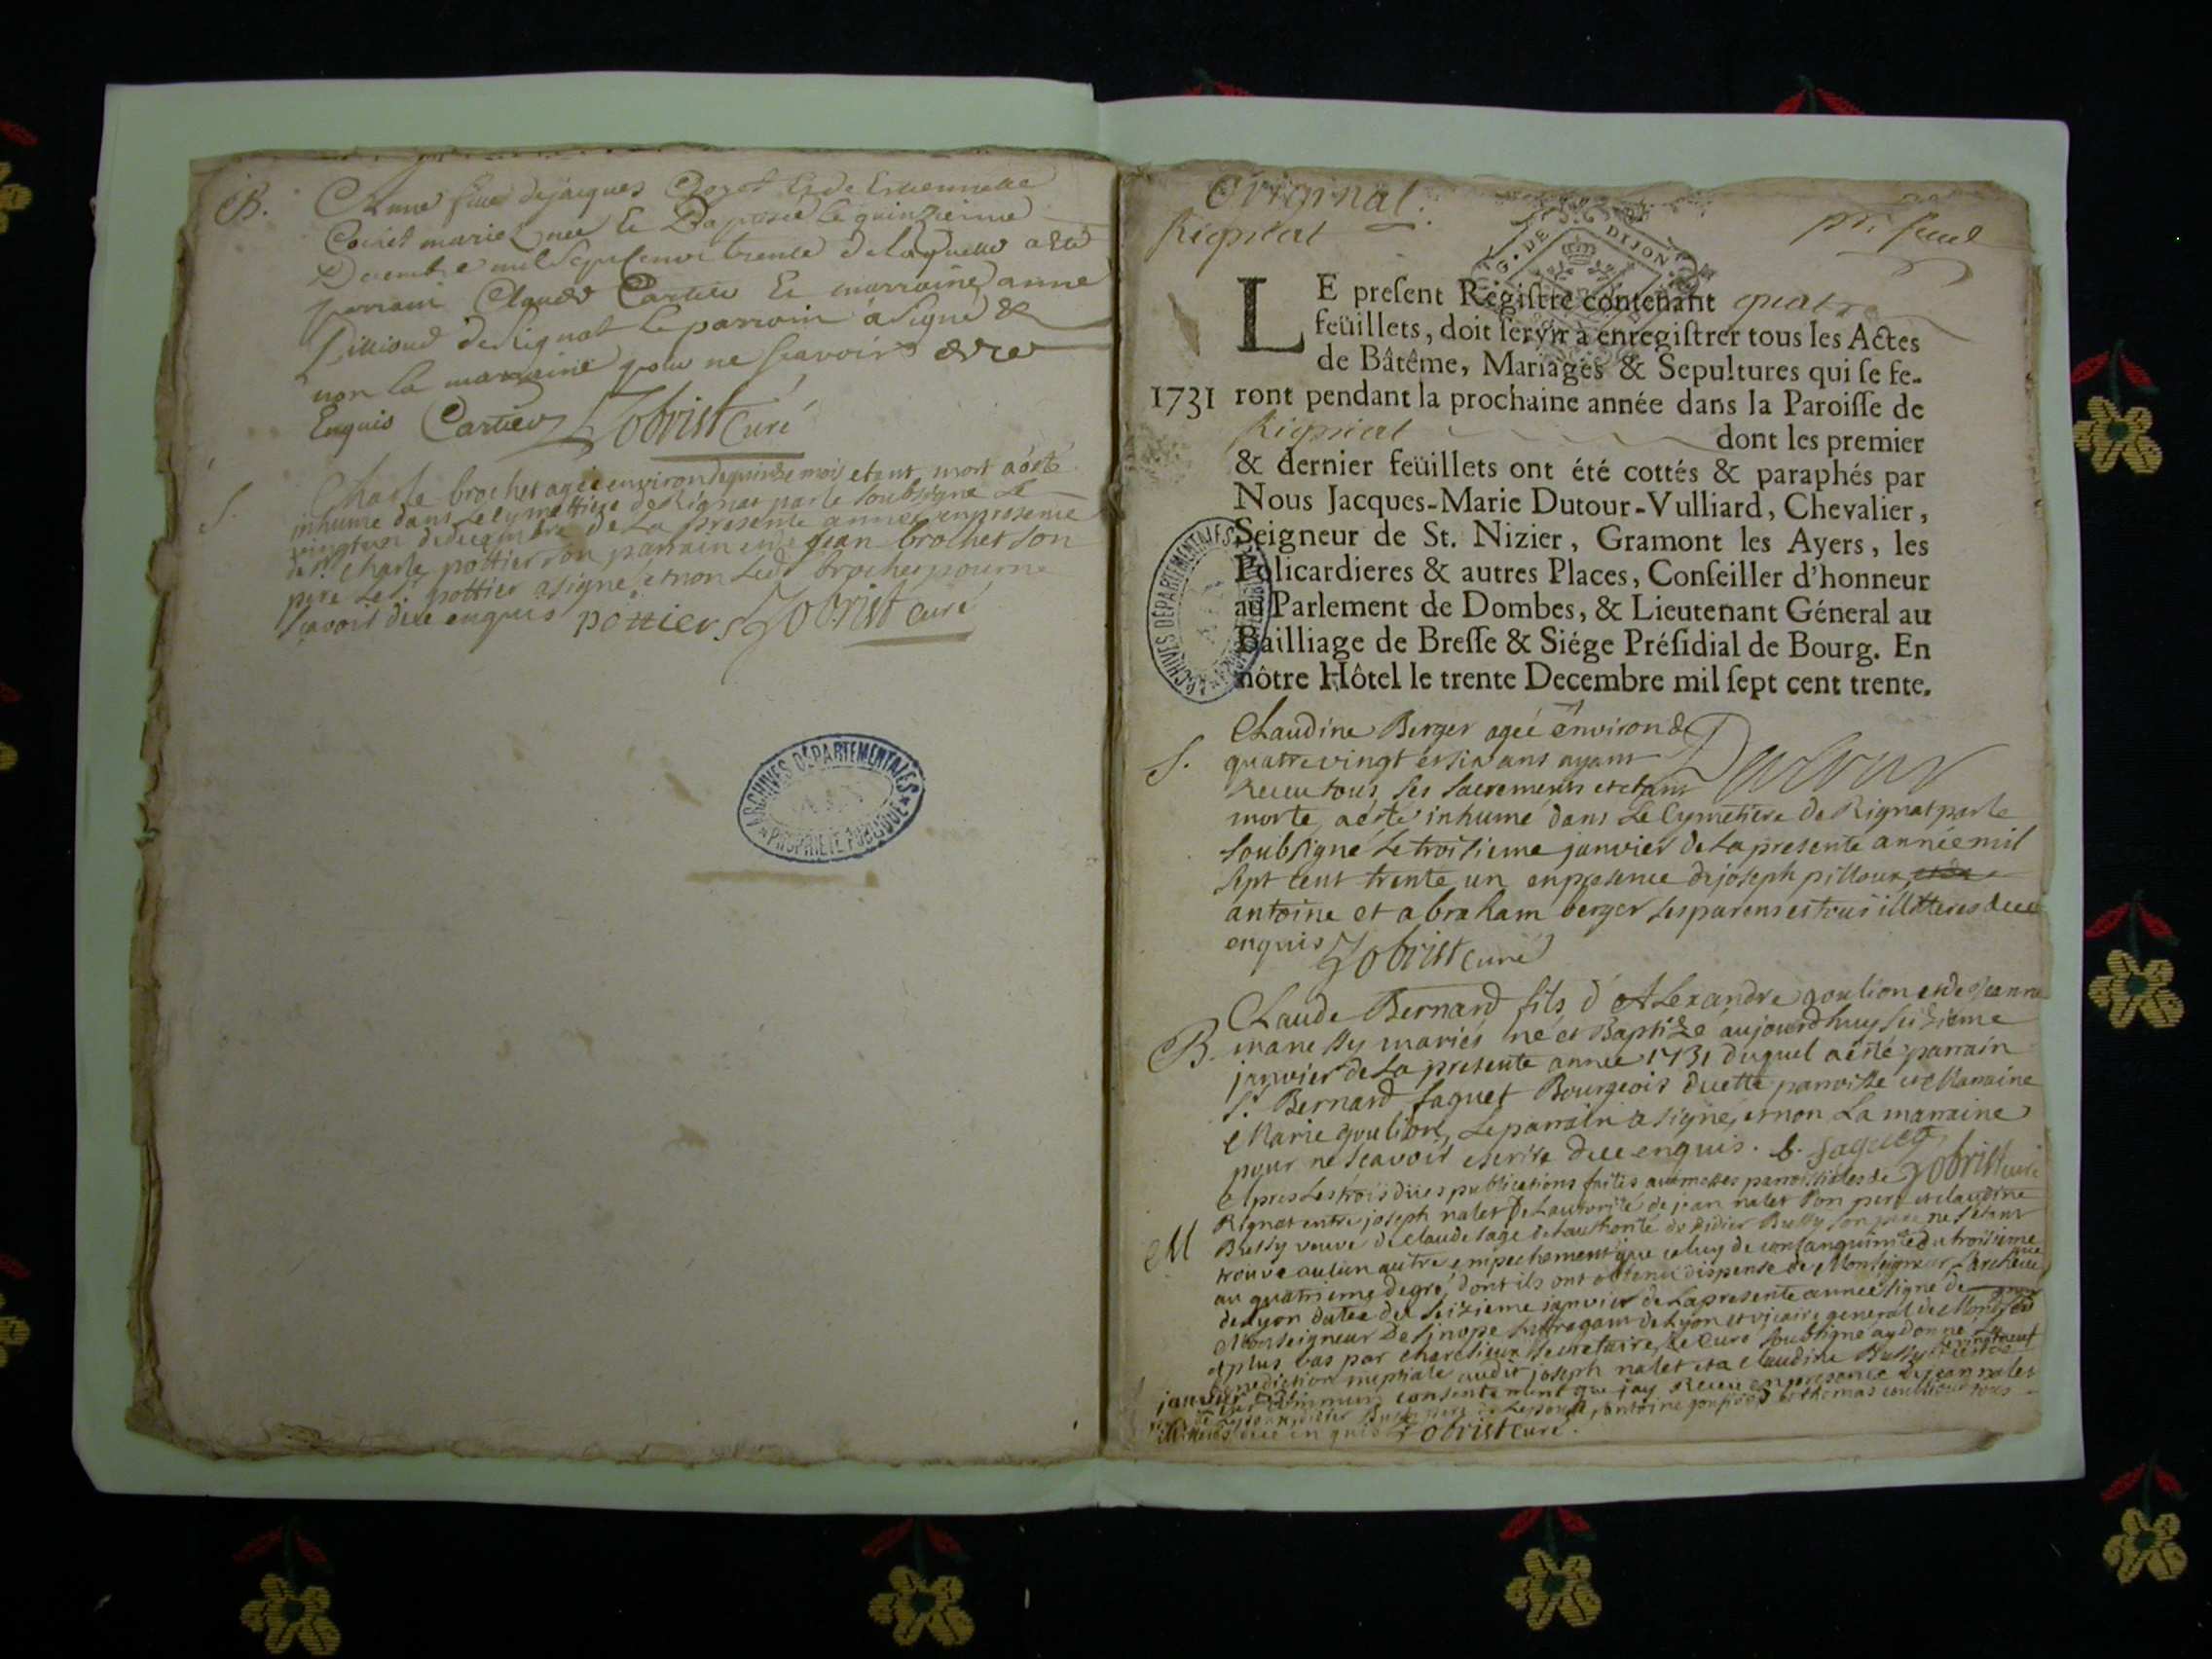 B.
Anne fille de jacques Et de Estiennette
mariez née Et Baptisée le quinzieme
Decembre mil Sept cent trente de laquelle a esté
parrain Claude Cartier Et marraine anne
de Rignat Le parrain a Signé &
non la marraine pour ne Scavoir
Enquis Cartier Zobrist Curé
S.
Charle brochet agée environ de quinze mois etant mort a esté
inhumé dans Le Cymettiere de Rignat par le soubsigné Le
vingt un decembre de La presente année en presence
de Sr. Charle pottier son parrain et de jean brochet son
pere Le Sr. pottier a signé, et non Led. brochet pour ne
scavoir de ce enquis pottier Zobrist Curé
ARCHIVES DÉPARTEMENTALES
AIN
PROPRIÉTÉ PUBLIQUE
Original.
Rignat
G. DE DIJON
LE preſent Regiſtre contenant quatre
feüillets, doit ſervir à enregiſtrer tous les Actes
de Bâtême, Mariages & Sepultures qui ſe fe-
1731 ront pendant la prochaine année dans la Paroiſſe de
Rignat dont les premier
& dernier feüillets ont été cottés & paraphés par
Nous Jacques-Marie Dutour-Vulliard, Chevalier,
Seigneur de St. Nizier, Gramont les Ayers, les
Policardieres & autres Places, Conſeiller d'honneur
au Parlement de Dombes, & Lieutenant Géneral au
Bailliage de Breſſe & Siége Préſidial de Bourg. En
nôtre Hôtel le trente Decembre mil ſept cent trente.
ARCHIVES DÉPARTEMENTALES
AIN
Dutour
S.
Claudine Berger agée environ de
quatre vingt et six ans ayant
Receu tous ses sacrements et etant
morte, a esté inhumé dans Le Cymetiere de Rignat par le
soubsigné Le troisieme janvier de La presente année mil
sept cent trente un en presence de joseph pilloux
antoine et abraham berger ses parens et tous illitteres de ce
enquis Zobrist Curé
B.
Claude Bernard fils d'Alexandre goulion et de Jeanne
mariés né et Baptizé aujourdhuy seizieme
janvier de La presente année 1731 duquel a esté parrain
Sr. Bernard faguet Bourgeois de cette parroisse et Marraine
Marie goulion, Le parrain a signé, et non La marraine
pour ne scavoir escrire de ce enquis. b. faguet
Zobrist curé
M
Apres Les trois publications faites aux messes paroissiales de
Rignat entre joseph nalet De L'autorité de jean nalet son pere et claudine
veuve de claude sage de L'authorité de Didier son pere ne s'etant
trouvé aucun autre empechement que celuy de consanguinité du troisieme
au quatrieme degré, dont ils ont obtenu dispense de Monseigneur L'archeveque
de Lyon datée du seizieme janvier de La presente année signé de
Monseigneur De Sinope suffragant de Lyon et vicaire general de
et plus bas par secretaire, Le Curé soubsigné ay donné
Benediction nuptiale audit joseph nalet et a claudine
janvier consentement que jay Receu en presence de jean nalet
antoine et thomas tous
illitteres de ce enquis Zobrist curé.